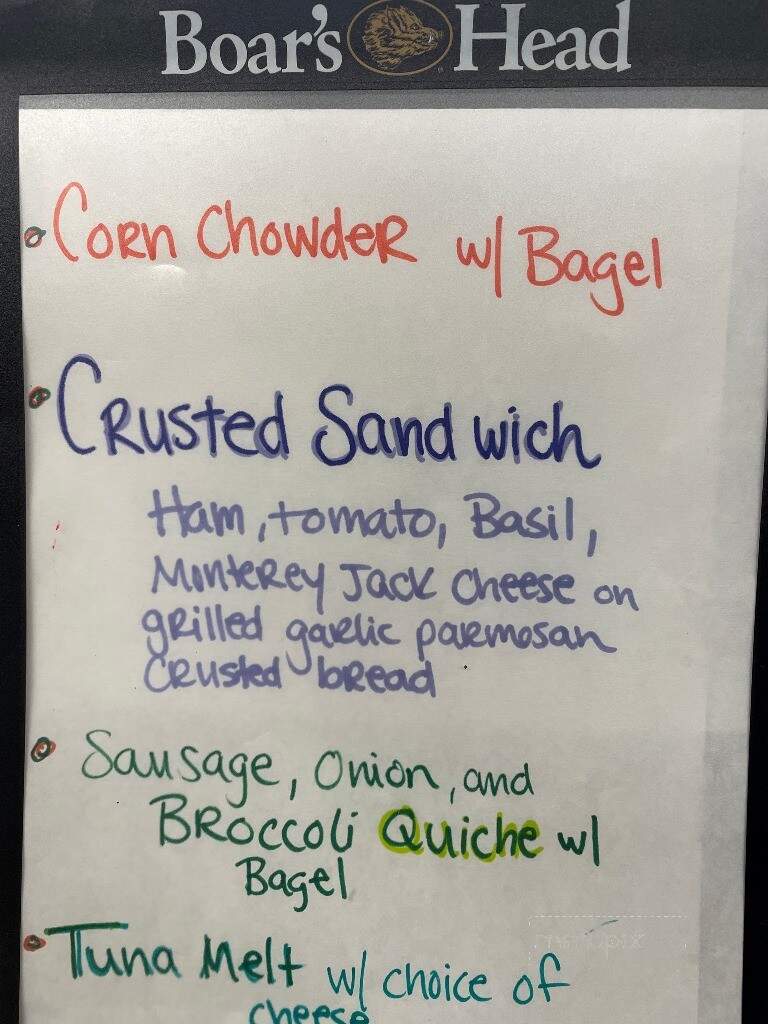 Boar's Head
Corn Chowder w/ Bagel
Crusted Sandwich
Ham, tomato, Basil,
Monterey Jack Cheese on
grilled garlic parmosan
Crusted bread
Sausage, Onion, and
Broccoli Quiche w/
Bagel
Tuna Melt w/ choice of
cheese